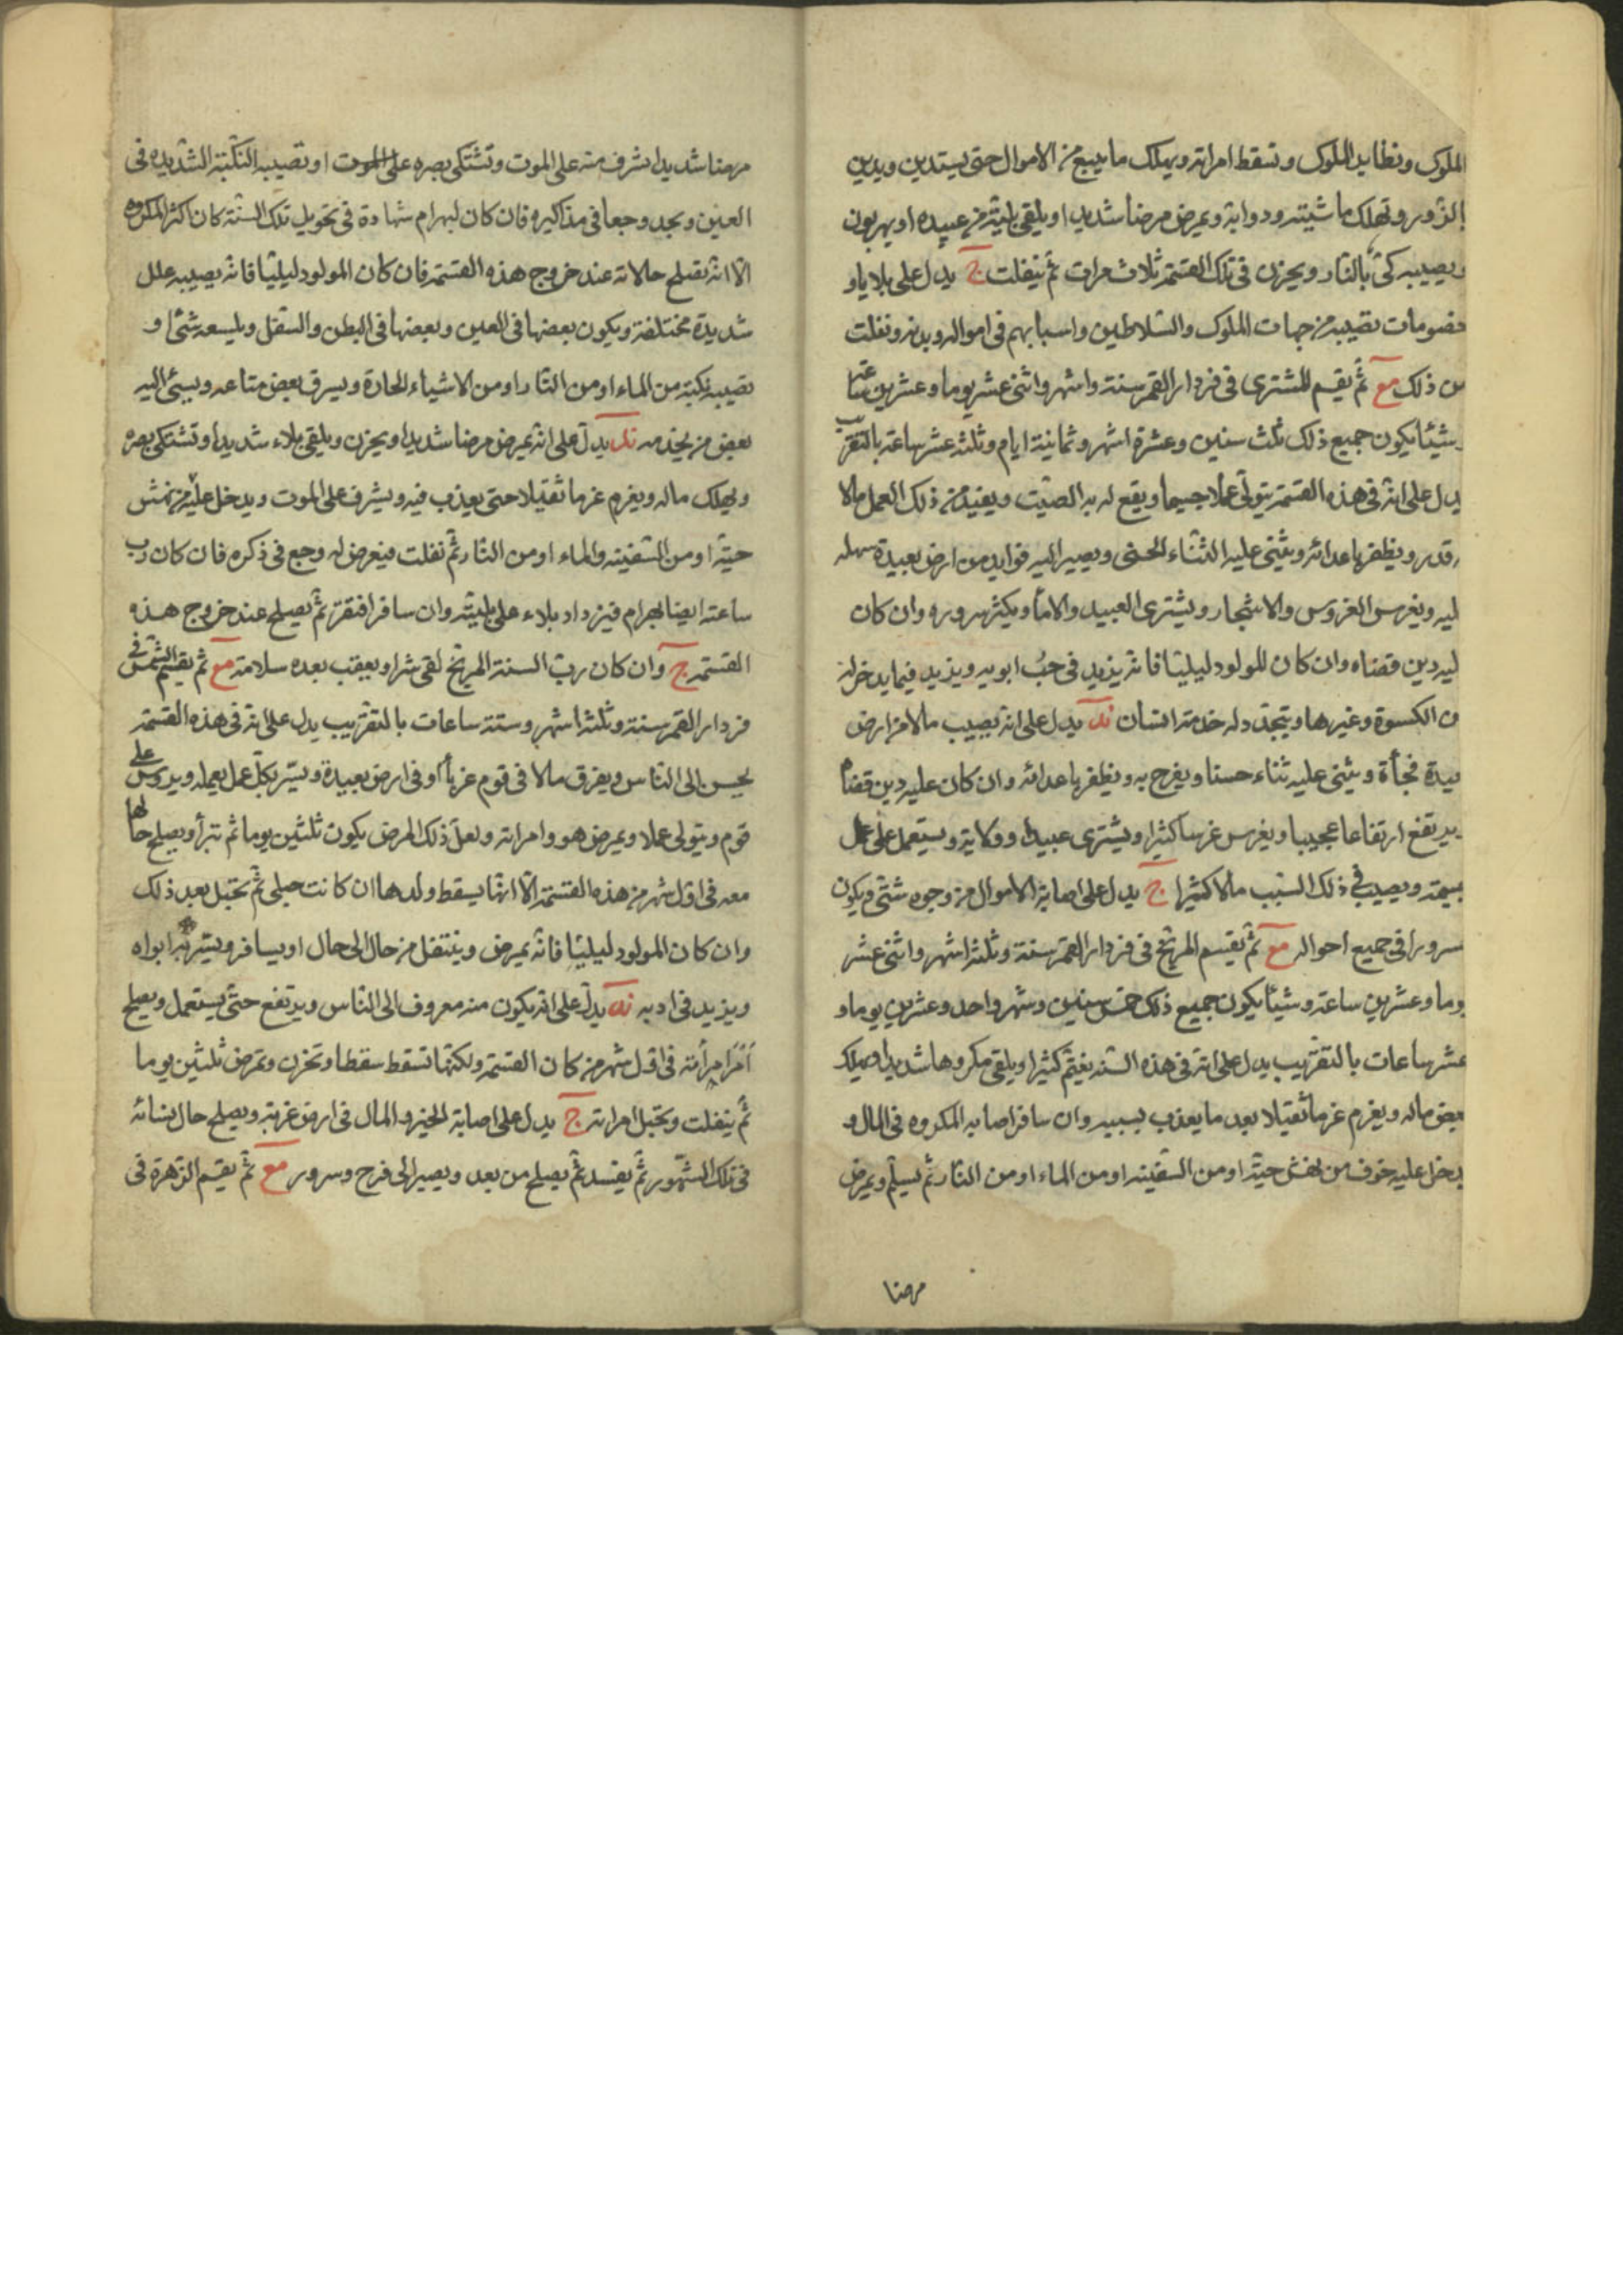 الملوك ونظايد الملوك وتسقط امراته ويهلك ما يبيع من الاموال حتى يستدين ويدين
بالزور وتهلك ماشيته ودوابه ويمرض مرضا شديدا ويلقى بليته من عبيده او يهربون
ويصيبه كى بالنار ويحزن فى تلك القسمة ثلاث مرات ثم ينفلت ج يدل على بلايا و
خصومات تصيبه من جهات الملوك والسلاطين واسبابهم فى امواله وبدنه ونفلت
من ذلك مع ثم يقسم للمشترى فى فردار القمر سنة واشهر واثنى عشر يوما وعشرين ساعة
وشيئا يكون جميع ذلك ثلث سنين وعشرة اشهر وثمانية ايام وثلثة عشر ساعة بالتقريب
يدل على انه فى هذه القسمة يتولى عملا جسيما ويقع له به الصيت ويفيد من ذلك العمل مالا
قدر ويظفر باعدائه ويثنى عليه الثناء الحسن ويصير اليه فوايد من ارض بعيدة سهله
ليه ويغرس الغروس والاشجار ويشترى العبيد والاماء ويكثر سروره وان كان
ليه دين قضاه وان كان للمولود ليليا فانه يزيد فى حب ابويه ويزيد فيما يدخر له
من الكسوة وغيرها ويتجدد له خدمة انسان ند يدل على انه يصيب مالا من ارض
بعيدة فجأة ويثنى عليه ثناء حسنا ويفرح به ويظفر باعدائه وان كان عليه دين قضاه
ويرتفع ارتفاعا عجيبا ويغرس غرسا كثيرا ويشترى عبيدا وولاية ويستعمل على عمل
ويصيب فى ذلك السبب مالا كثيرا ج يدل على اصابة الاموال من وجوه شتى ويكون
سرورا فى جميع احواله مع ثم يقسم المريخ فى فردار القمر سنة وثلثة اشهر واثنى عشر
يوما وعشرين ساعة وشيئا يكون جميع ذلك خمس سنين وشهر واحد وعشرين يوما و
عشر ساعات بالتقريب يدل على انه فى هذه السنه يغتم كثيرا ويلقى مكروها شديدا ويهلك
بعض ماله ويغرم غرما ثقيلا بعد ما يعذب بسببه وان سافر اصابه المكروه فى المال و
يدخل عليه خوف من نهش حية او من السفينه او من الماء او من النار ثم يسلم ويمرض
مرضا
مرضا شديدا يشرف منه على الموت وتشتكى بصره على الموت او تصيبه النكبة الشديده فى
العين ويجد وجعا فى مذاكيره فان كان لبهرام شهادة فى تحويل تلك السنة كان اكثر المكروه
الا انه يصلح حالاته عند خروج هذه القسمة فان كان المولود ليليا فانه يصيبه علل
شديدة مختلفة ويكون بعضها فى العين وبعضها فى البطن والسفل ويلسعه شئ او
تصيبه نكبة من الماء او من النار او من الاشياء الحادة ويسرق بعض متاعه ويسئ اليه
بعض من يخدمه ند يدل على انه يمرض مرضا شديدا ويحزن ويلقى بلاء شديدا وتشتكى بصره
ويهلك ماله ويغرم غرما ثقيلا حتى يعذب فيه ويشرف على الموت ويدخل عليه من نهش
حية او من السفينه والماء او من النار ثم نفلت فيعرض له وجع فى ذكره فان كان رب
ساعته ايضا لبهرام فيزداد بلاء على بليته وان سافر افتقر ثم يصلح عند خروج هذه
القسمة ج وان كان رب السنة المريخ لقى شرا ويعقب بعده سلامة مع ثم يقسم الشمس فى
فردار القمر سنة وثلثة اشهر وستة ساعات بالتقريب يدل على انه فى هذه القسمة
يحسن الى الناس ويفرق مالا فى قوم غرباء او فى ارض بعيدة ويسر بكل عمل يعمله ويروس على
قوم ويتولى عملا ويمرض هو وامراته ولعل ذلك المرض يكون ثلثين يوما ثم تبرأ ويصلح حالها
معه فى اول شهر من هذه القسمة الا انها يسقط ولدها ان كانت حبلى ثم تحبل بعد ذلك
وان كان المولود ليليا فانه يمرض وينتقل من حال الى حال او يسافر ويسر به ابواه
ويزيد فى ادبه ند يدل على انه يكون منه معروف الى الناس ويرتفع حتى يستعمل ويصلح
امرامرأته فى اول شهر من كان القسمة ولكنها تسقط سقطا وتحزن وتمرض ثلثين يوما
ثم ينفلت وتحبل امراته ج يدل على اصابة الخير والمال فى ارض غربة ويصلح حال نسائه
فى تلك الشهور ثم يفسد ثم يصلح من بعد ويصير الى فرح وسرور مع ثم يقسم الزهرة فى